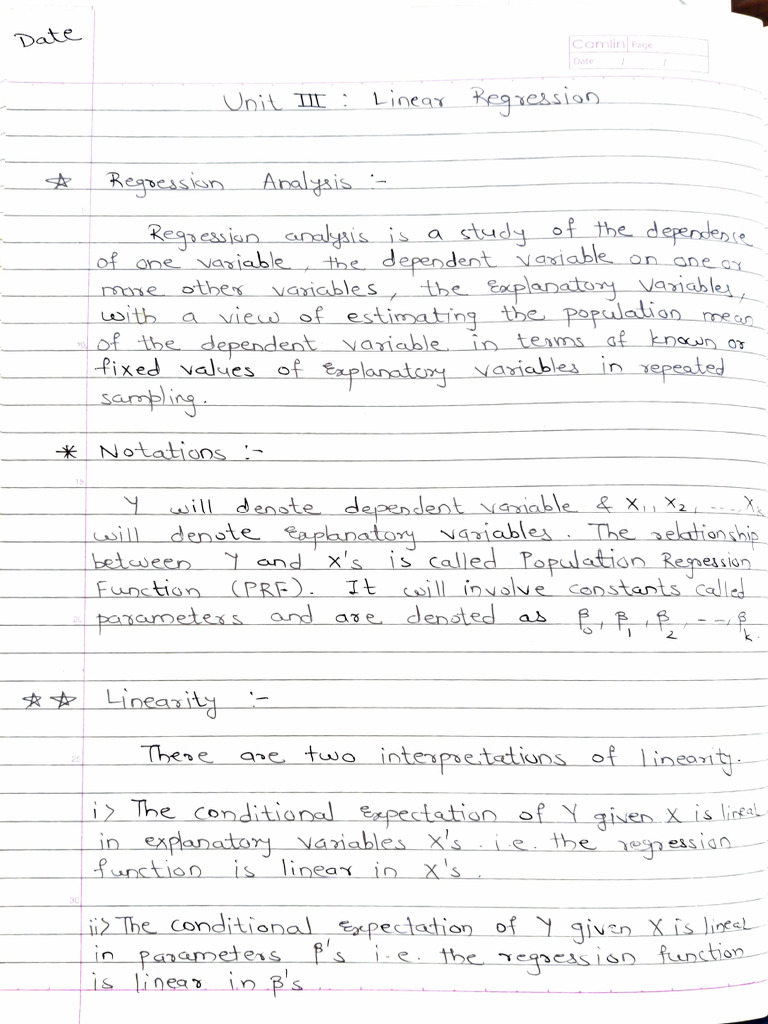 Date
Camlin Page
Date / /
Unit III : Linear Regression
☆ Regression Analysis :-
Regression analysis is a study of the dependence
of one variable, the dependent variable on one or
more other variables, the explanatory variables,
with a view of estimating the population mean
10 of the dependent variable in terms of known or
fixed values of explanatory variables in repeated
sampling.
* Notations :-
15
Y will denote dependent variable & X₁, X₂, .... Xₖ
will denote explanatory variables. The relationship
between Y and X's is called Population Regression
Function (PRF). It will involve constants called
20 parameters and are denoted as β₀, β₁, β₂, --, βₖ.
☆☆ Linearity :-
25 There are two interpretations of linearity.
i> The conditional expectation of Y given X is lineal
in explanatory variables X's. i.e. the regression
function is linear in X's.
30
ii> The conditional expectation of Y given X is lineal
in parameters β's i.e. the regression function
is linear in β's.